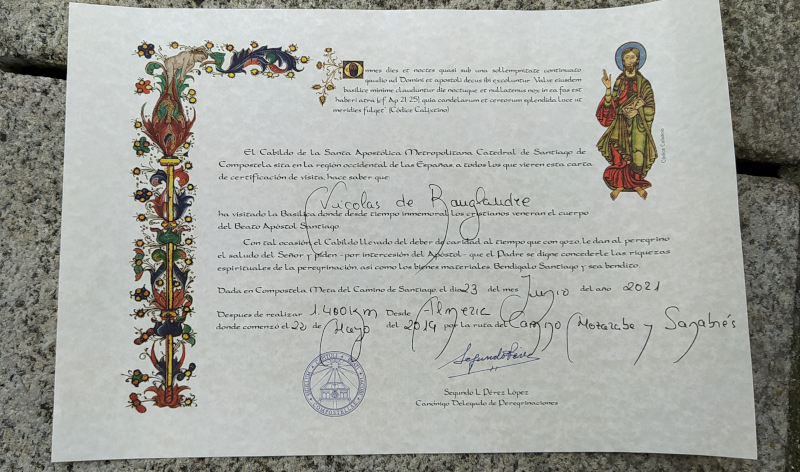 Omnes dies et noctes quasi sub una sollempnitate continuato
gaudio ad Domini et apostoli decus ibi excoluntur. Valve eiusdem
basilice minime clauduntur die noctuque et nullatenus nox in ea fas est
haberi atra [cf. Ap 21 25] quia candelarum et cereorum splendida luce ut
meridies fulget" (Códice Calixtino)
Códice Calixtino
El Cabildo de la Santa Apostólica Metropolitana Catedral de Santiago de
Compostela sita en la región occidental de las Españas, a todos los que vieren esta carta
de certificación de visita, hace saber que:
Nicolas de Rauglaudre
ha visitado la Basílica donde desde tiempo inmemorial los cristianos veneran el cuerpo
del Beato Apóstol Santiago.
Con tal ocasión, el Cabildo llevado del deber de caridad, al tiempo que con gozo le dan al peregrino
el saludo del Señor y piden -por intercesión del Apóstol- que el Padre se digne concederle las riquezas
espirituales de la peregrinación, así como los bienes materiales. Bendígalo Santiago y sea bendito.
Dada en Compostela Meta del Camino de Santiago el día 23 del mes Junio del año 2021
Despues de realizar 1.400km Desde Almeria
donde comenzó el 22 de Mayo del 2019 por la ruta del Camino Mozarabe y Sanabrés
Segundo L. Pérez López
Canónigo Delegado de Peregrinaciones